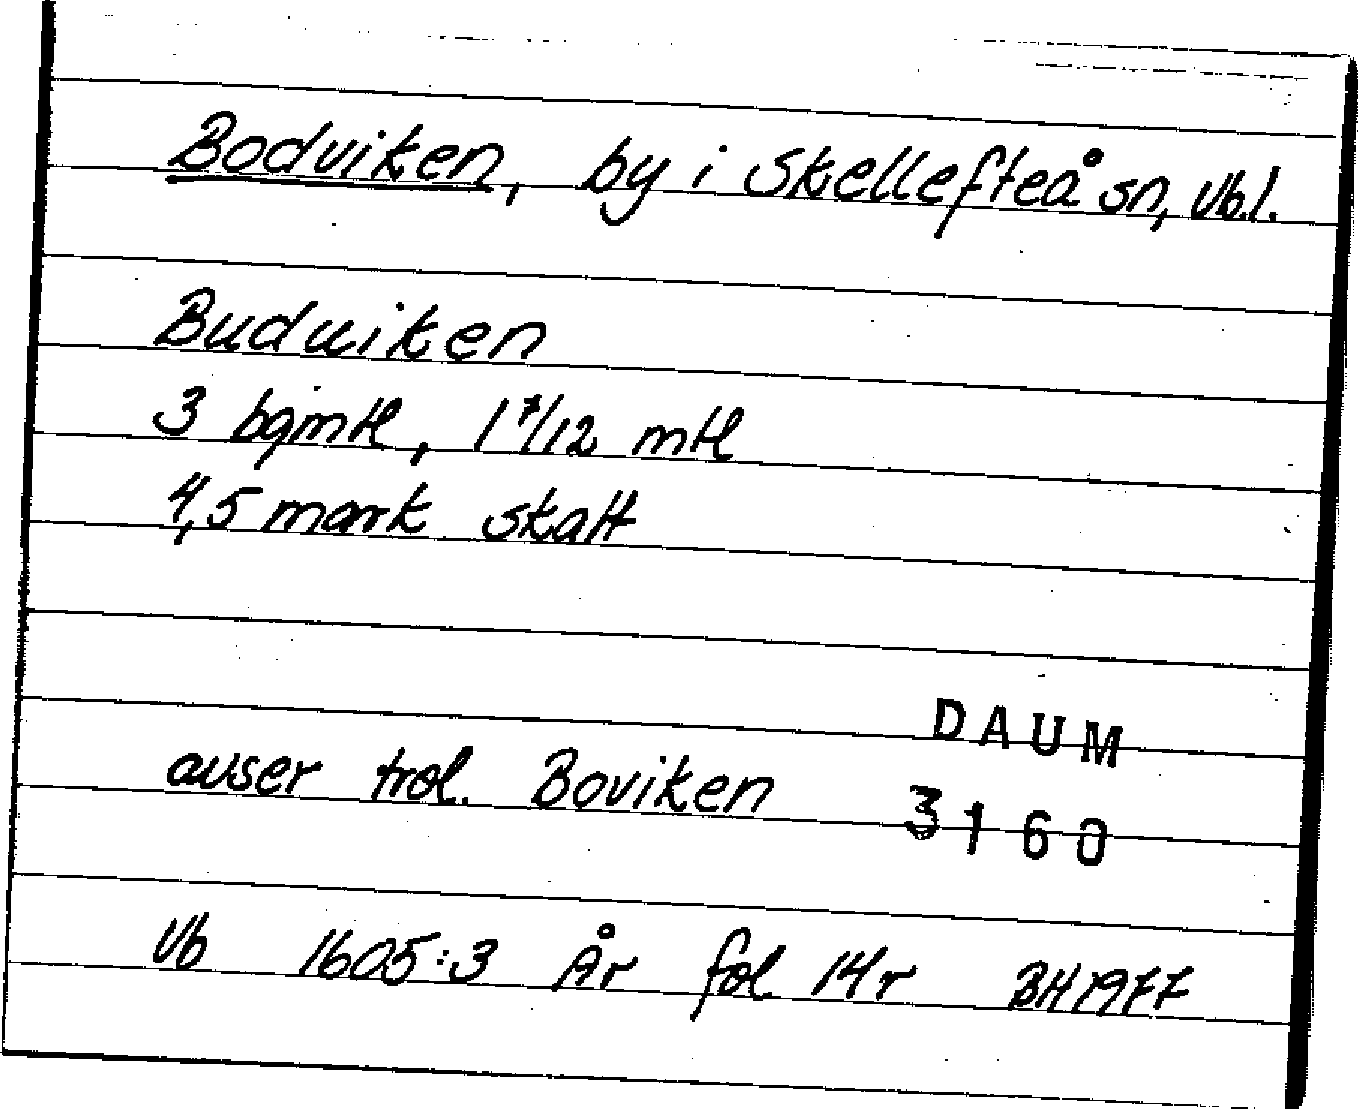 Bodviken, by i Skellefteå sn, Vb.l.
Buduiken
3 bgmtl, 1 7/12 mtl
4,5 mark skatt
DAUM
avser trol. Boviken
3160
Vb 1605:3 År fol 14r BH 1977